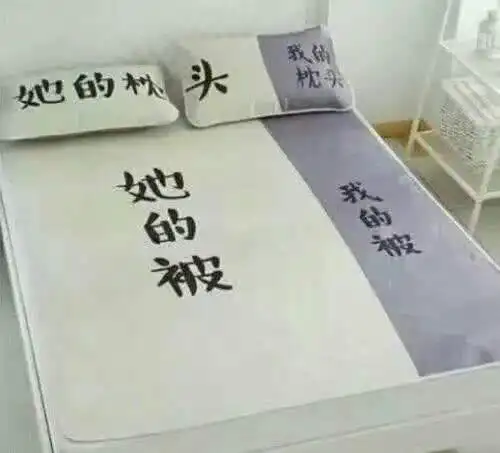 她的枕头
我的
枕头
她的被
我的被